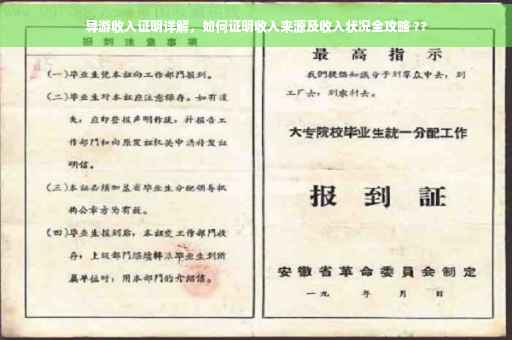 导游收入证明详解，如何证明收入来源及收入状况全攻略 ??
报到注意事项
(一)毕业生凭本证向工作部门报到。
(二)毕业生对本证应注意保存。如有遗
失，应即登报声明作废，并报告工
作部门和向原发证机关申请补发证
明信。
(三)本证必须加盖省毕业生分配领导机
构公章方为有效。
(四)毕业生报到后，本证交工作部门收
存，上级部门
毕业生到所
属单位时，用本部门的介绍信。
最高指示
我们提倡知识分子到群众中去，到
工厂去，到农村去。
大专院校毕业生统一分配工作
报到证
安徽省革命委员会制定
一九 年 月 日